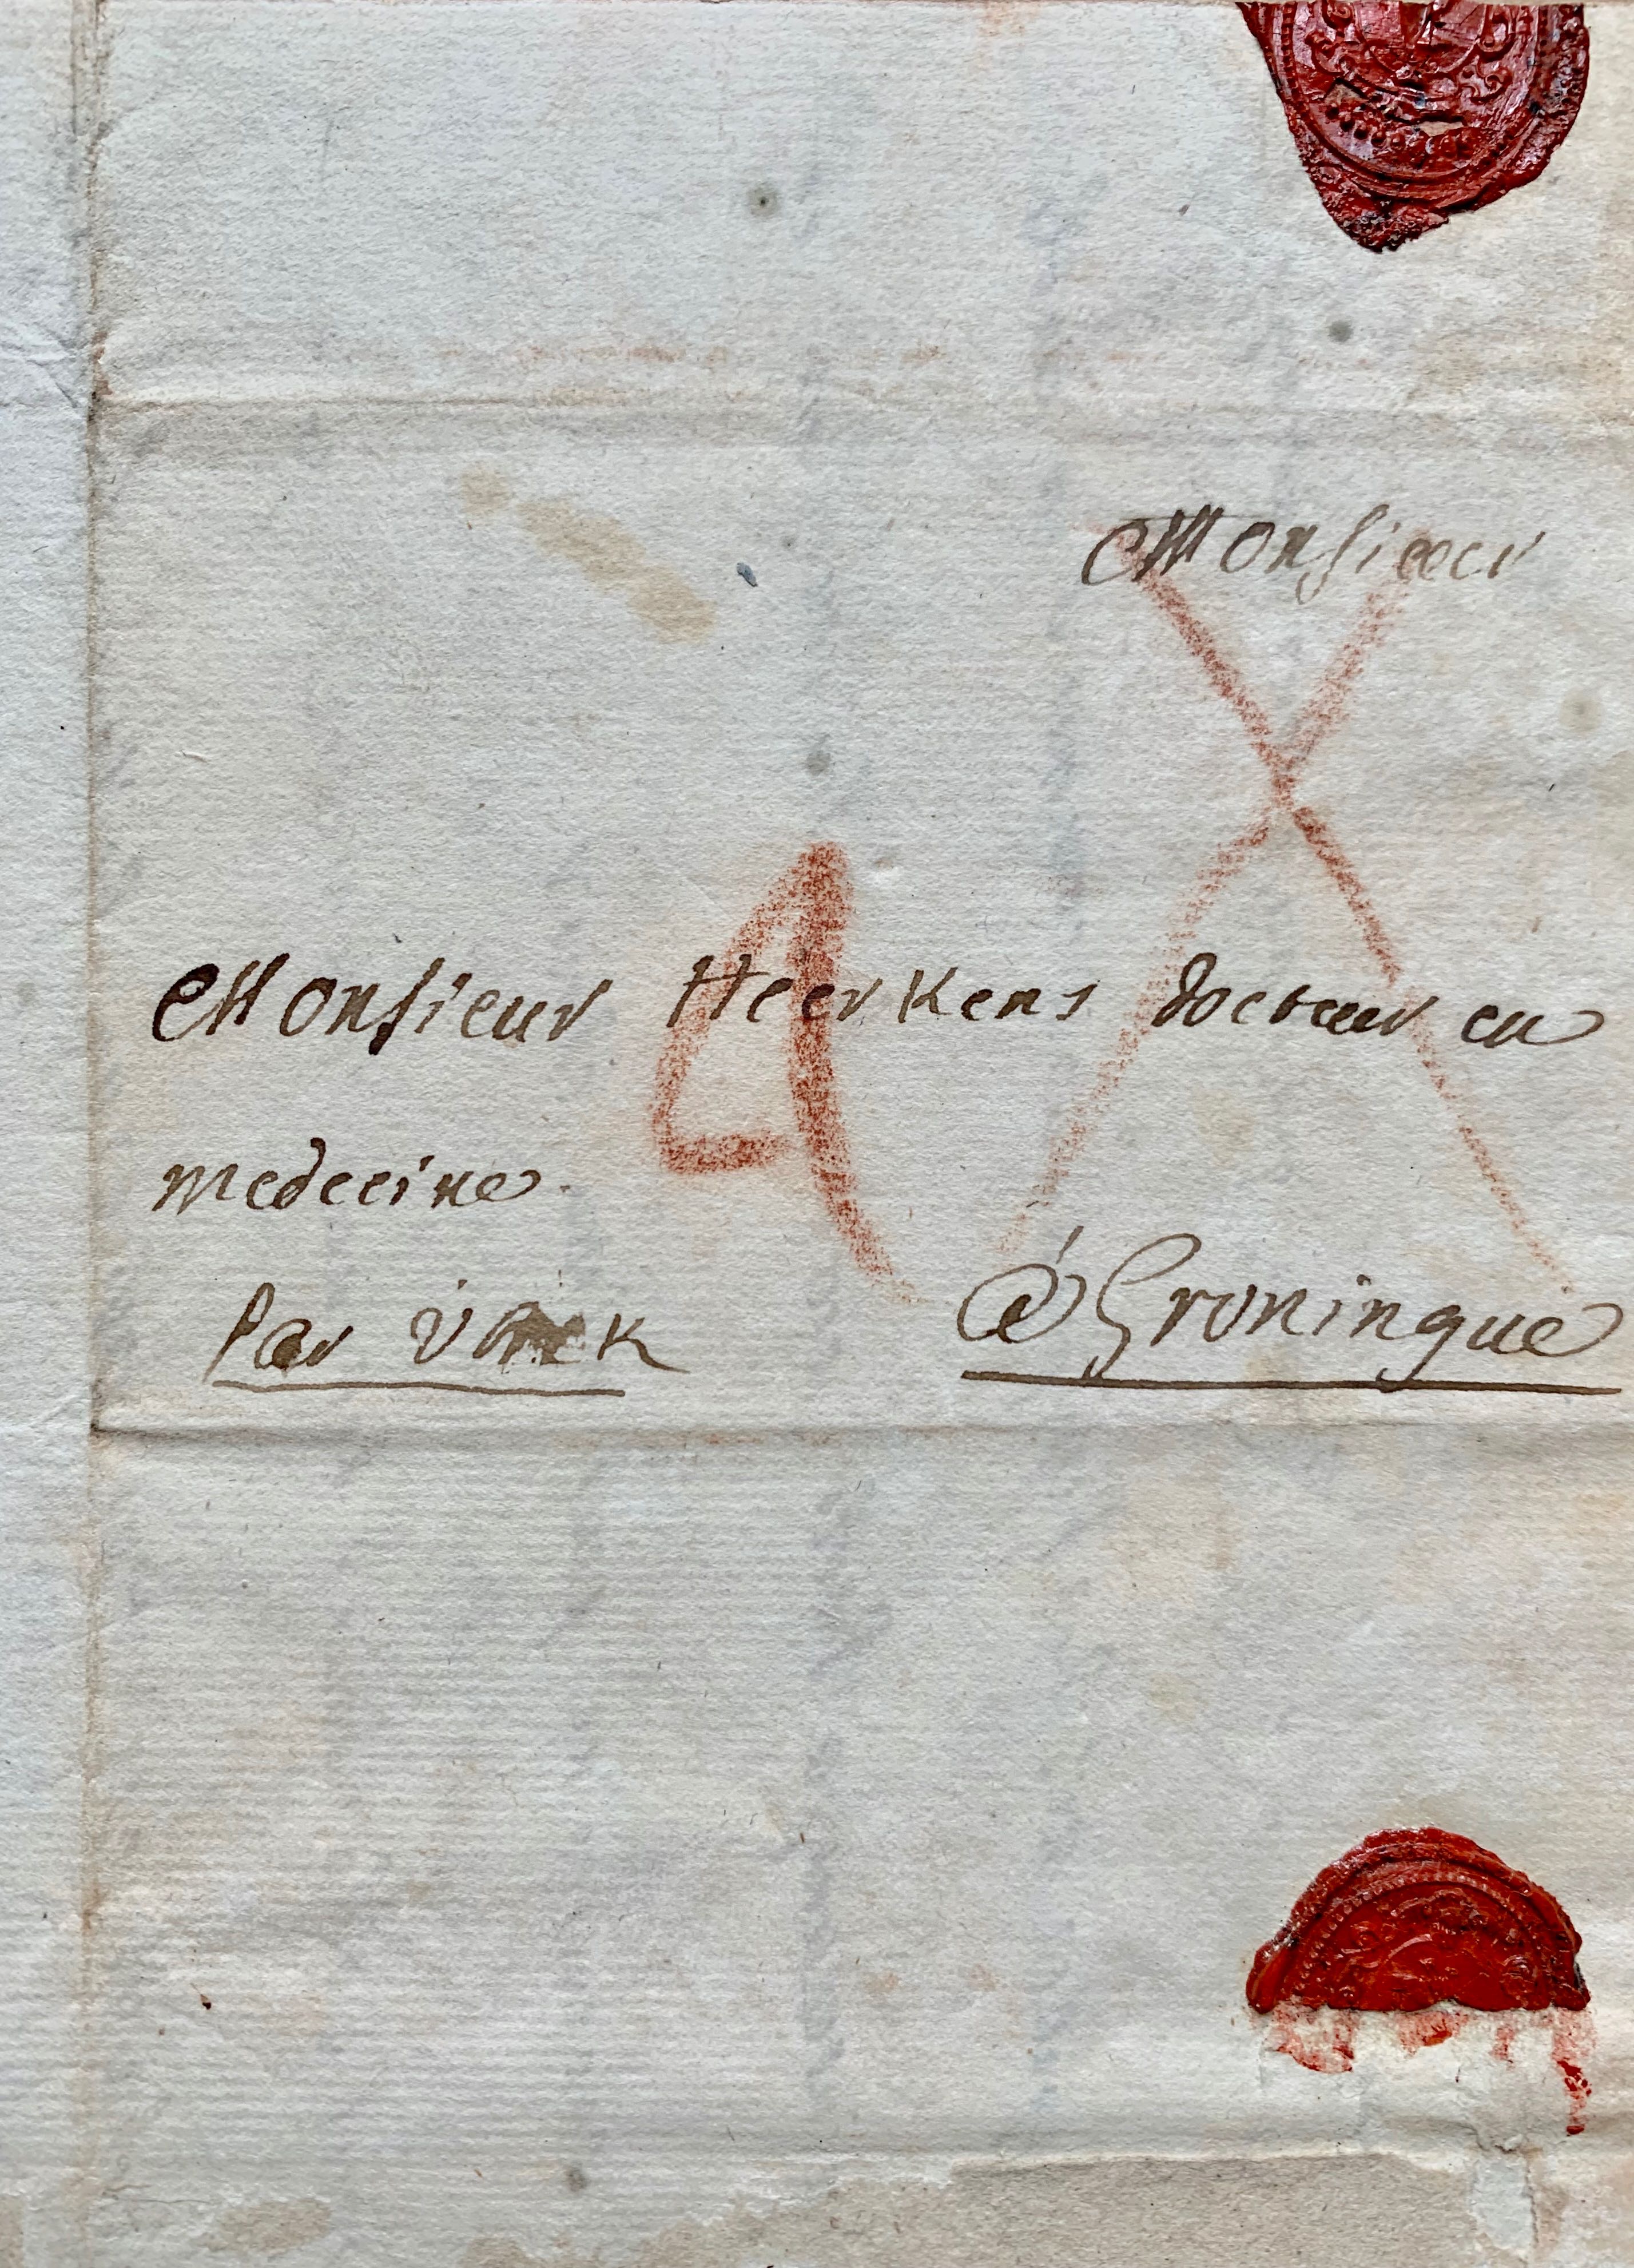 Monsieur
Monsieur Heerkens docteur en
medecine
4
par
à Groningue